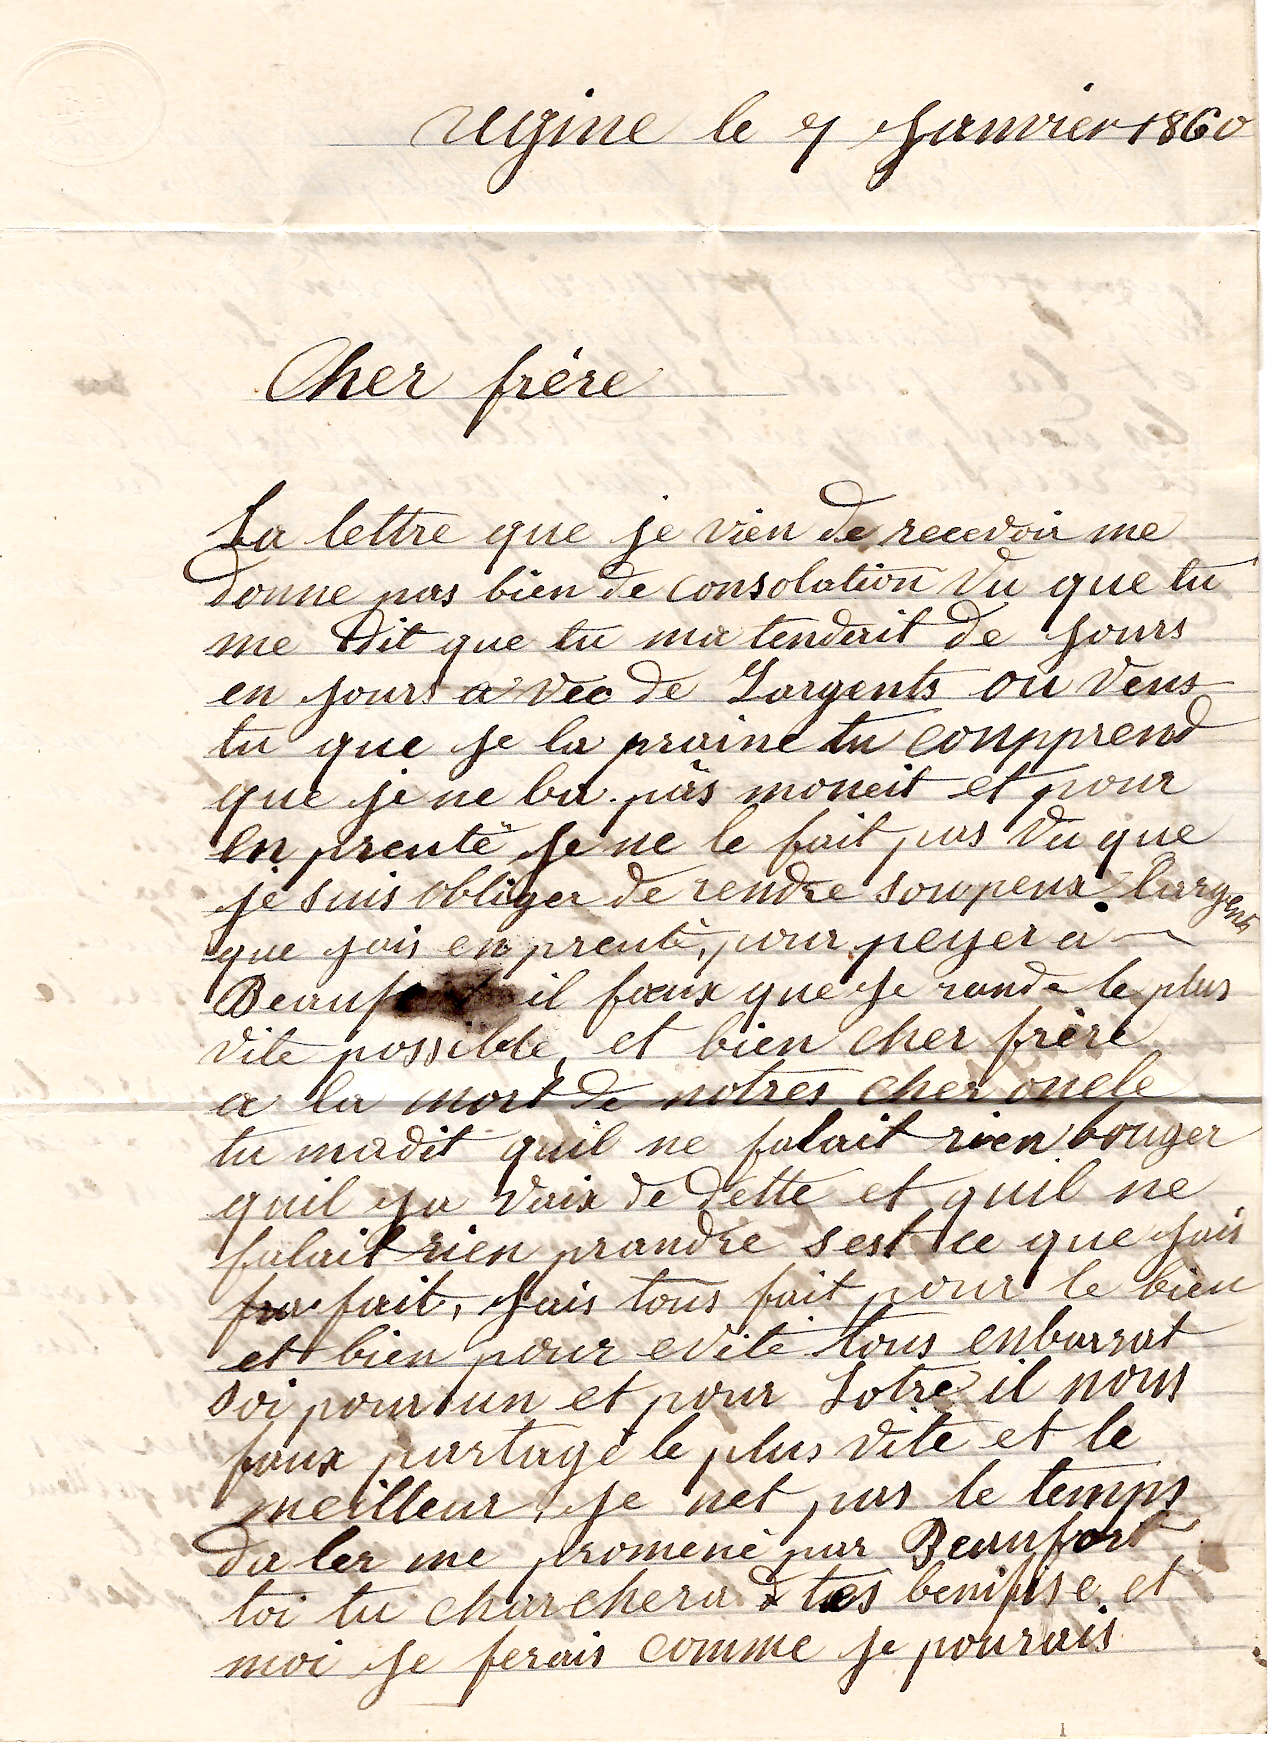 ugine le 7 Janvier 1860
Cher frère
La lettre que je vien de recevoir me
donne pas bien de consolation vu que tu
me dit que tu ma tendait de jours
en jours a vec de Largents ou veus
tu que je la praine tu conpprend
que je ne ba pas moneit et pour
en preuté je ne le fait pas vu que
je suis obliger de rendre sou peux Largents
que jais en preuté, pour peyer a
Beaufort il faux que je rande le plus
vite possible, et bien cher frère
a la mort de notres cher oncle
tu madit quil ne falait rien bouger
quil ya vaix de dette et quil ne
falait rien prandre sest ce que jais
fait, jais tous fait pour le bien
et bien pour evité tous enbarrat
soi pour lun et pour Lotre il nous
faux partagé le plus vite et le
meilleur, je net pas le temps
da ler me promené par Beaufort
toi tu charchera tes benifise et
moi je ferais comme je pourais